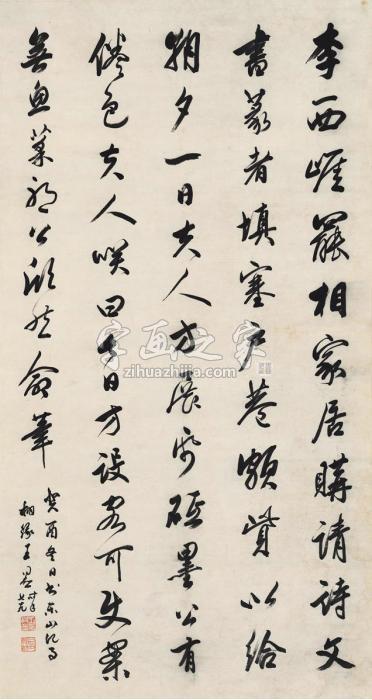 李西崖罷相家居購請詩文
書篆者填塞戶巷頗資以給
朝夕一日夫人方展帋硯墨公有
倦色夫人咲曰今日方設客可使案
無魚菜耶公欣然命筆
癸酉冬日書東山
栩緣王同愈時年
字画之家
zihuazhijia.com